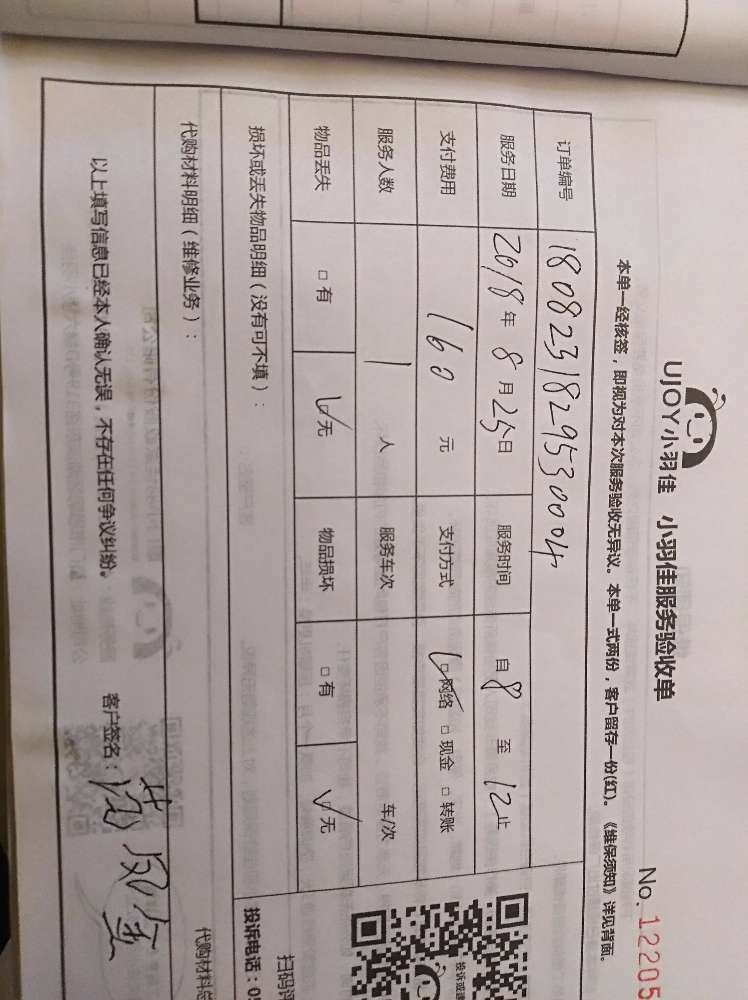 UJOY小羽佳 小羽佳服务验收单
No.12205
本单一经核签，即视为对本次服务验收无异议。本单一式两份，客户留存一份(红)。《维保须知》详见背面。
订单编号 1808231829530004
服务日期 2018年8月25日 服务时间 自8至12止
支付费用 160元 支付方式 ☑网络 □现金 □转账
服务人数 1人 服务车次 车/次
物品丢失 □有 ☑无 物品损坏 □有 ☑无
损坏或丢失物品明细（没有可不填）：
扫码评
投诉电话：05
代购材料明细（维修业务）：
代购材料总
以上填写信息已经本人确认无误，不存在任何争议纠纷。 客户签名：